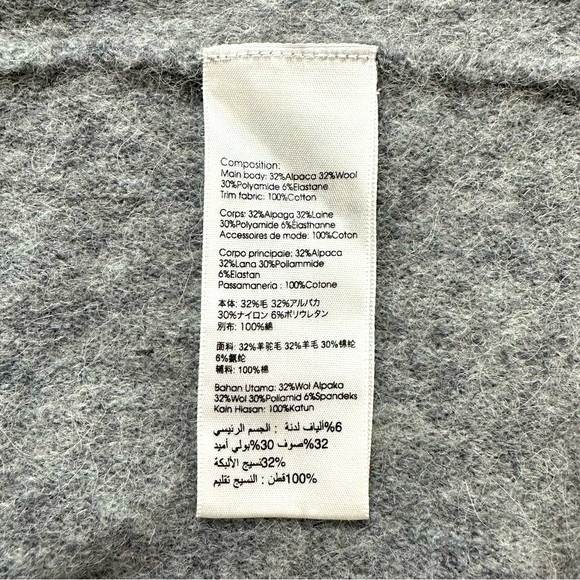 Composition:
Main body: 32%Alpaca 32%Wool
30%Polyamide 6%Elastane
Trim fabric: 100%Cotton
Corps: 32%Alpaga 32%Laine
30%Polyamide 6%Élasthanne
Accessoires de mode: 100%Coton
Corpo principaie: 32%Alpaca
32%Lana 30%Poliammide
6%Elastan
Passamaneria : 100%Cotone
本体: 32%毛 32%アルパカ
30%ナイロン 6%ポリウレタン
別布: 100%綿
面料: 32%羊驼毛 32%羊毛 30%锦纶
6%氨纶
辅料: 100%棉
Bahan Utama: 32%Wol Alpaka
32%Wol 30%Poliamid 6%Spandeks
Kain Hiasan: 100%Katun
6%ألياف لدنة : الجسم الرئيسي
32%صوف 30%بولي أميد
32%نسيج الألبكة
100%قطن : النسيج تقليم